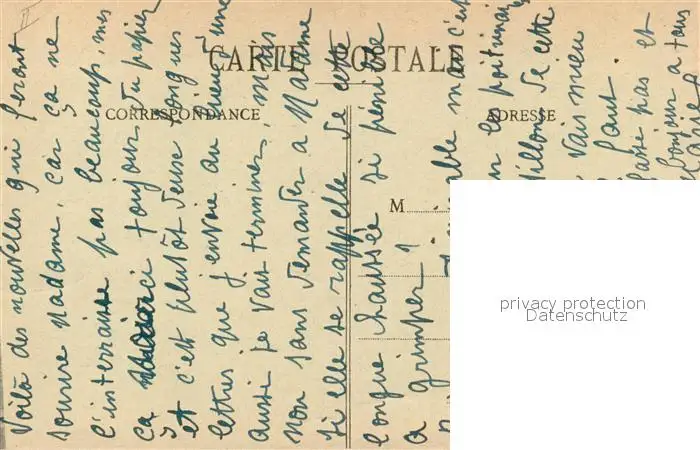 CARTE POSTALE
CORRESPONDANCE
ADRESSE
M
Voilà des nouvelles qui feront
sourire Madame, car ça ne
l'interraisse pas beaucoup, mes
ça noircci toujours du papier
et c'est plutôt deux longues
lettres que j'envoie au lieu d'une
aussi je vais terminer mais
non sans demander a Madame
si elle se rappelle de cette
longue chaussée si pénible
a grimper
vais mieu
pas et
bonjour a tous
privacy protection
Datenschutz